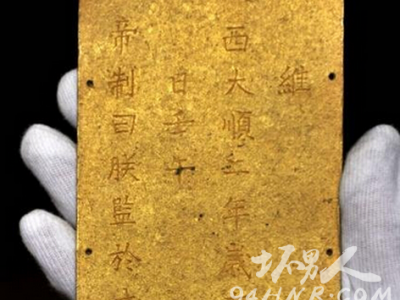 維
西大順二年歲
日壬午
帝制曰朕監於
坏男人